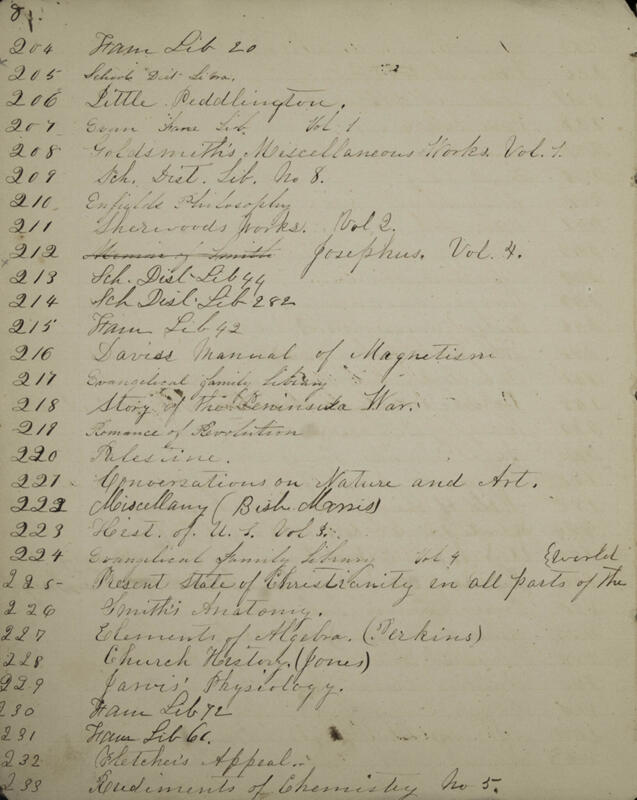 8.
204 Fam Lib 20
205 School Dist Libra.
206 Little Peddlington.
207 Evan Fam Lib. Vol 1
208 Goldsmith's Miscellaneous Works. Vol. 1.
209 Sch. Dist. Lib. No 8.
210 Enfields Philosophy
211 Sherwoods Works. Vol 2.
212 Memoir of Smith Josephus. Vol. 4.
213 Sch. Dist Lib 44
214 Sch Dist Lib 282
215 Fam Lib 42
216 Daviss Manual of Magnetism
217 Evangelical family Library
218 Story of the Peninsula War.
219 Romance of Revolution
220 Palestine.
221 Conversations on Nature and Art.
222 Miscellany (Bish Morris)
223 Hist. of U. S. Vol 3.
224 Evangelical family Library Vol 4 {world
225 Present State of Christianity in all parts of the
226 Smith's Anatomy.
227 Elements of Algebra. (Perkins)
228 Church History. (Jones)
229 Jarvis' Physiology.
230 Fam Lib 72
231 Fam Lib 61.
232 Fletcher's Appeal.
233 Rudiments of Chemistry No 5.